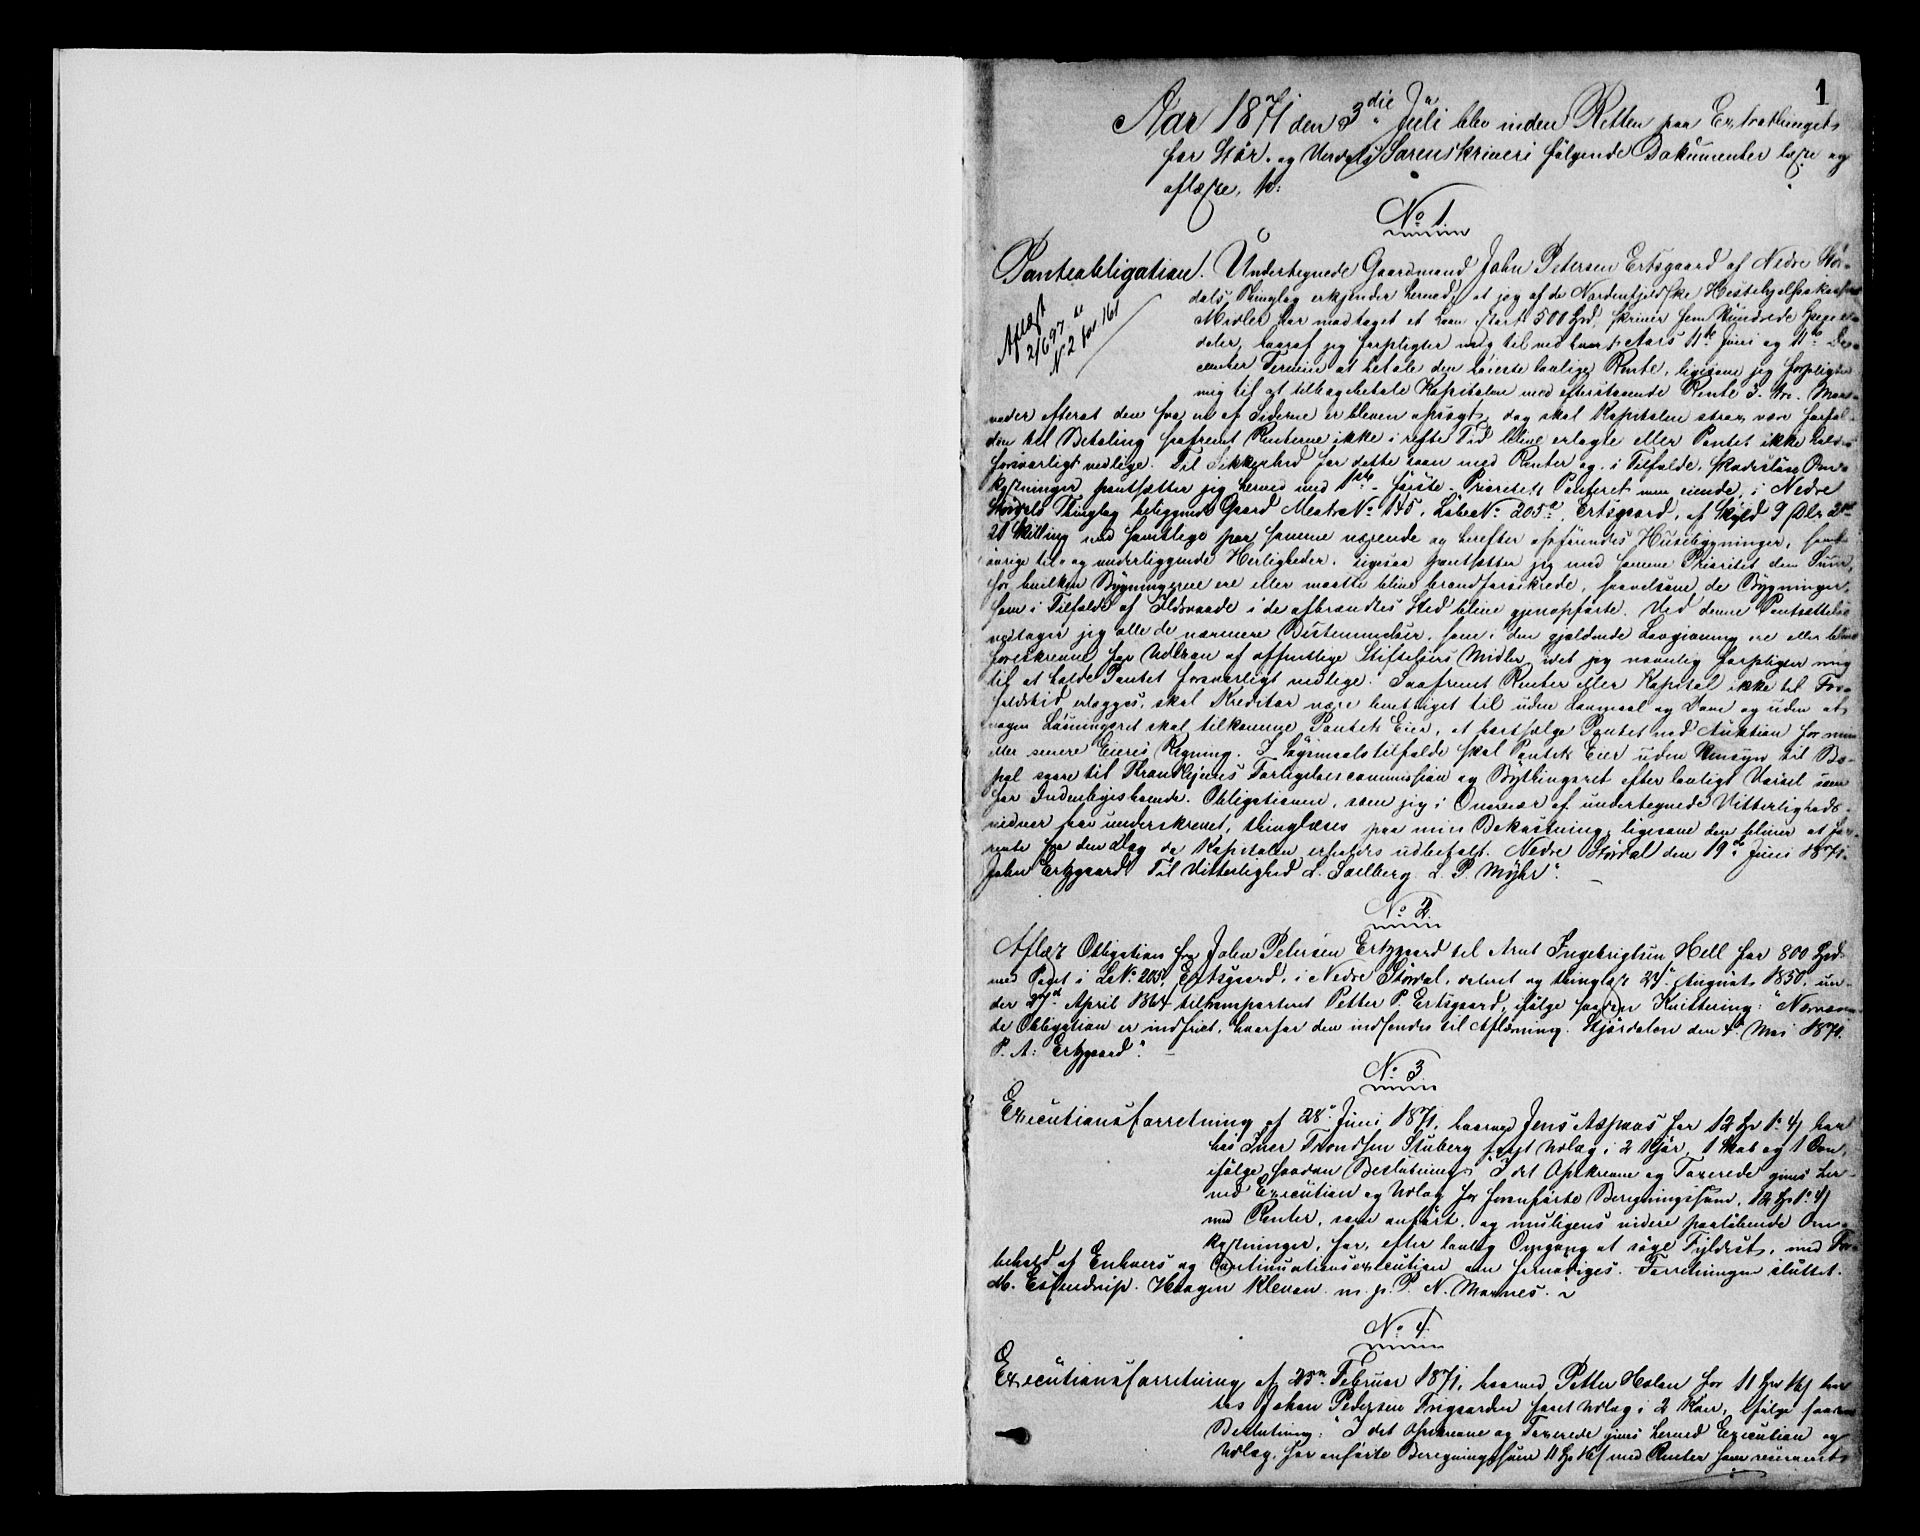 1
Aar 1871 den 3die Juli blev inden Retten paa Extrathinget
for Stør- og Verdals Sorenskriveri følgende Dokumenter læste og
aflæste, No:
No 1
Panteobligation. Undertegnede Gaardmand John Petersen Ertsgaard af Nedre Stør-
dals Thinglag erkjender herved, at jeg af de Nordenfjeldske Hestehjelpskasses
Midler har modtaget et Laan stort 500 Spd, skriver fem Hundrede Specie-
daler, hvoraf jeg forpligter mig til ved hvert Aars 11te Juni og 11te De-
cember Termin at betale den høieste lovlige Rente, ligesom jeg forpligter
mig til at tilbagebetale Kapitalen med efterstaaende Rente 3-tre-Maa-
Aflæst
2/6 97
N 2 fol 161
neder efterat den fra en af Siderne er bleven opsagt, dog skal Kapitalen strax være forfal-
den til Betaling saafremt Renterne ikke i rette Tid blive erlagte eller Pantet ikke holdes
forsvarligt vedlige. Til Sikkerhed for dette Laan med Renter og i Tilfælde skadesløse Om-
kostninger pantsætter jeg herved med 1ste-første-Prioritets Panteret min eiende, i Nedre
Størdals Thinglag beliggende Gaard Matr No 145, Løbe No 205a, Ertsgaard, af Skyld 9 Dlr 2
21 Skilling med samtlige paa samme værende og herefter opførendes Husebygninger, samt
øvrige til- og underliggende Herligheder. Ligesaa pantsætter jeg med samme Prioritet den Sum,
for hvilken Bygningerne ere eller maatte blive brandforsikrede, saavelsom de Bygninger,
som i Tilfælde af Ildsvaade i de afbrændtes Sted blive gjenopførte. Ved denne Pantsættelse
vedtager jeg alle de nærmere Bestemmelser, som i den gjældende Lovgivning ere eller blive
foreskrevne for Udlaan af offentlige Stiftelsers Midler, idet jeg navnlig forpligter mig
til at holde Pantet forsvarligt vedlige. Saafremt Renter eller Kapital ikke til For-
faldstid erlægges, skal Kreditor være berettiget til uden Lovmaal og Dom og uden at
nogen Løsningsret skal tilkomme Pantets Eier, at bortsælge Pantet ved Auktion for min
eller senere Eieres Regning. I Søgsmaalstilfælde skal Pantets Eier uden Hensyn til Bo-
pæl svare til Throndhjems Forligelsescommission og Bythingsret efter lovligt Varsel som
for Indenbyesboende. Obligationen, som jeg i Overvær af undertegnede Vitterligheds-
vidner har underskrevet, thinglæses paa min Bekostning, ligesom den bliver at for-
rente fra den Dag da Kapitalen erholdes udbetalt. Nedre Størdal den 19de Juni 1871.
John Ertzgaard. Til Vitterlighed L. Salberg. L. P. Myhr".
No 2.
Aflæst Obligation fra John Petersen Ertzgaard til Arnt Ingebrigtsen Hell for 800 Spd
med Pant i L No 205a, Ertsgaard, i Nedre Størdal, dateret og thinglæst 29de August 1850, un-
der 27d April 1864 transporteret Petter P. Ertsgaard, ifølge saadan Kvittering: "Nærværen-
de Obligation er indfriet, hvorfor den indsendes til Aflæsning. Stjørdalen den 4d Mai 1871.
P. A: Ertzgaard".
No 3
Executionsforretning af 28de Juni 1871, hvorved Jens Aspaas for 12 Sp 1 # 4 s har
hos Iver Trondsen Stuberg faaet Udlæg i 2 Kjør, 1 Skab og 1 Ovn,
ifølge saadan Beslutning: "I det Opskrevne og Taxerede gives her-
ved Execution og Udlæg for foranførte Beregningssum, 12 Sp 1 # 4 s
med Renter, som anført, og muligens videre paaløbende Om-
kostninger, for, efter lovlig Omgang at søge Fyldest, med For-
behold af Enhvers og Continuationsexecution om fornødiges. Forretningen sluttet.
M. Esfendrup. Haagen Kleven m. p. P. N. Marnes."
No 4.
Executionsforretning af 23de Februar 1871, hvorved Petter Holan for 11 Spd 16 s har
hos Johan Pedersen Trøgaarden faaet Udlæg i 2 Køer, ifølge saadan
Beslutning: "I det Opskrevne og Taxerede gives herved Execution og
Udlæg for anførte Beregningssum 11 Sp 16 s med Renter som reserveret